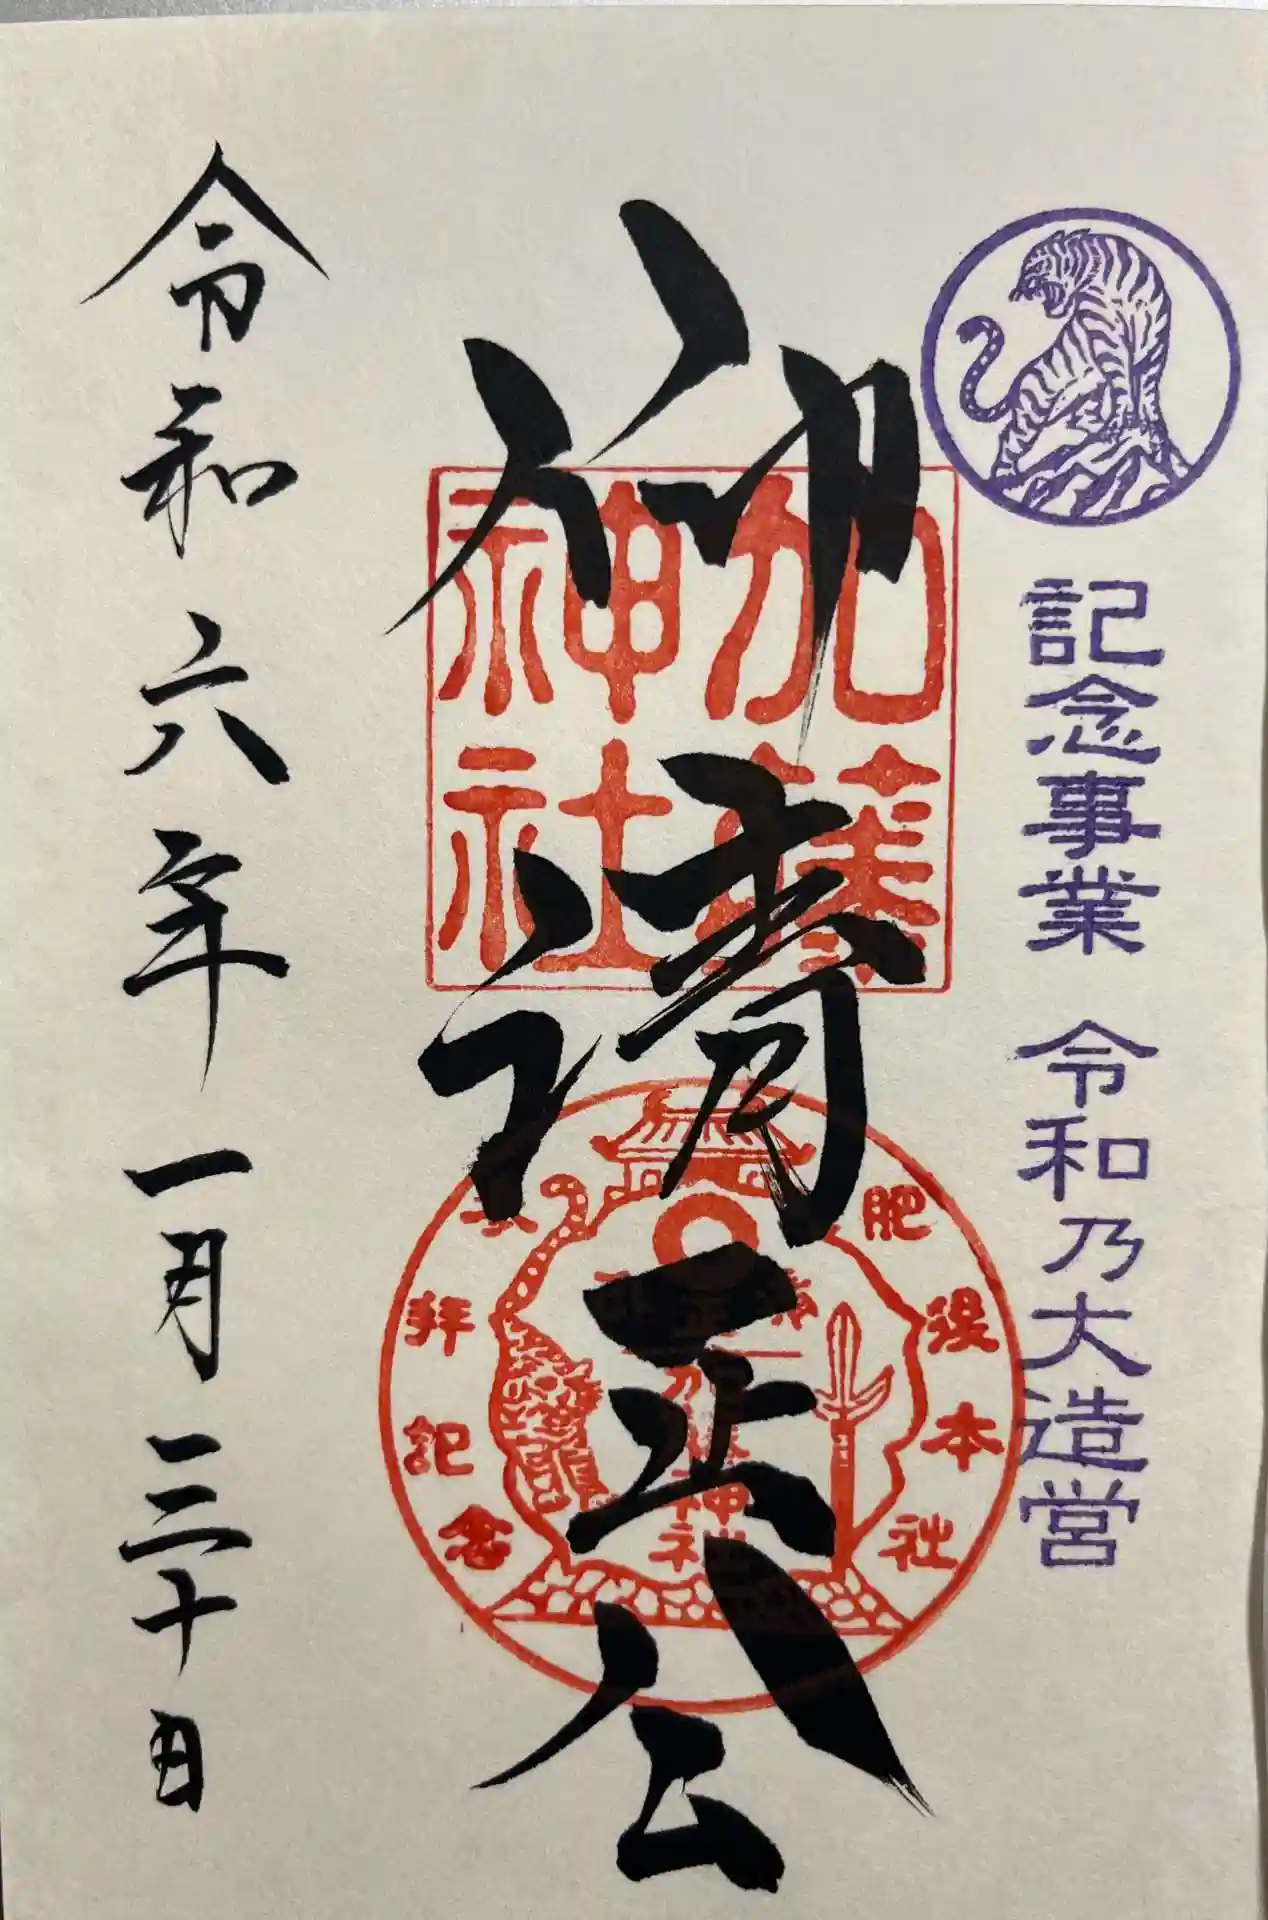 記念事業 令和乃大造営
加藤
神社
仰清正公
肥後本社
参拝記念
加藤神社
令和六年一月三十日